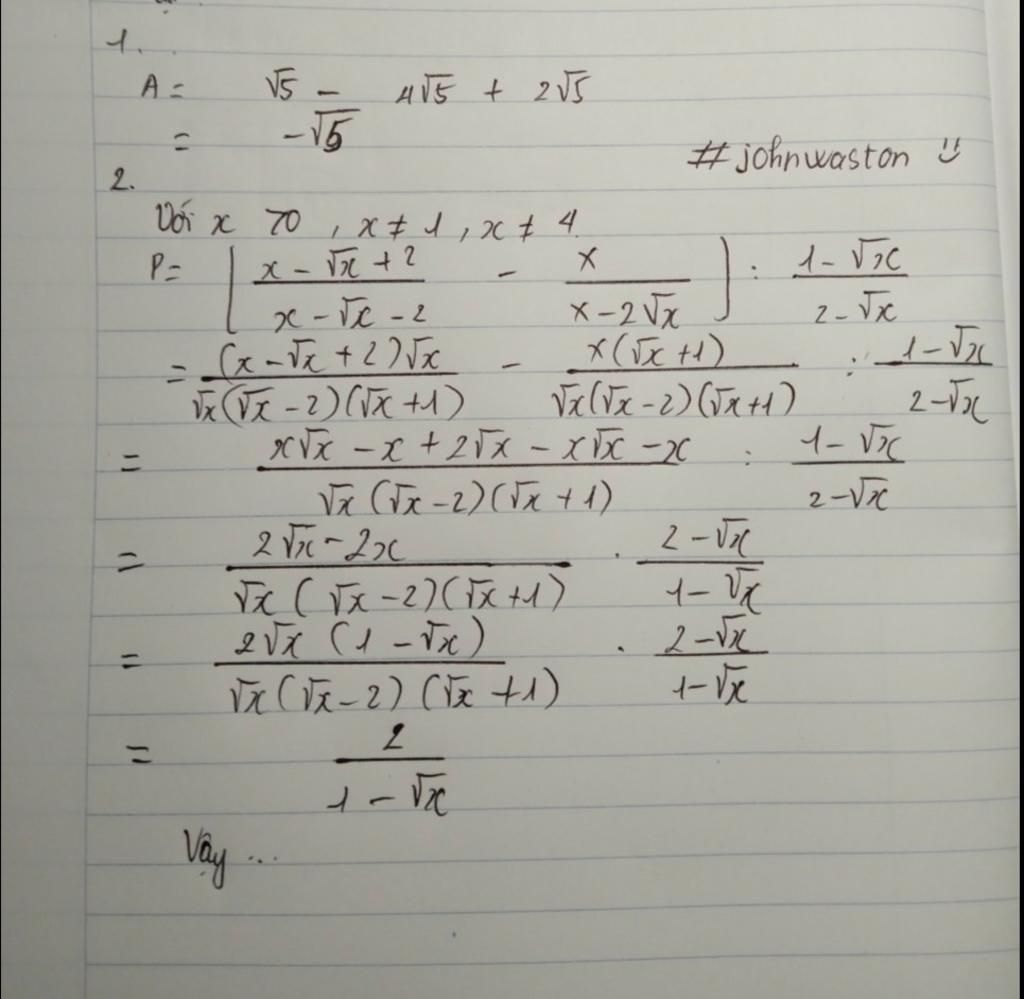 1.
A = √5 - 4√5 + 2√5
= -√5
#johnwaston
2.
Với x >0, x ≠ 1, x ≠ 4
P= [(x - √x + 2)/(x - √x - 2) - x/(x - 2√x)] : (1 - √x)/(2 - √x)
= (x - √x + 2)√x/(√x(√x - 2)(√x + 1)) - x(√x + 1)/(√x(√x - 2)(√x + 1)) : (1 - √x)/(2 - √x)
= (x√x - x + 2√x - x√x - x)/(√x(√x - 2)(√x + 1)) : (1 - √x)/(2 - √x)
= (2√x - 2x)/(√x(√x - 2)(√x + 1)) . (2 - √x)/(1 - √x)
= 2√x(1 - √x)/(√x(√x - 2)(√x + 1)) . (2 - √x)/(1 - √x)
= 2/(1 - √x)
Vậy ...